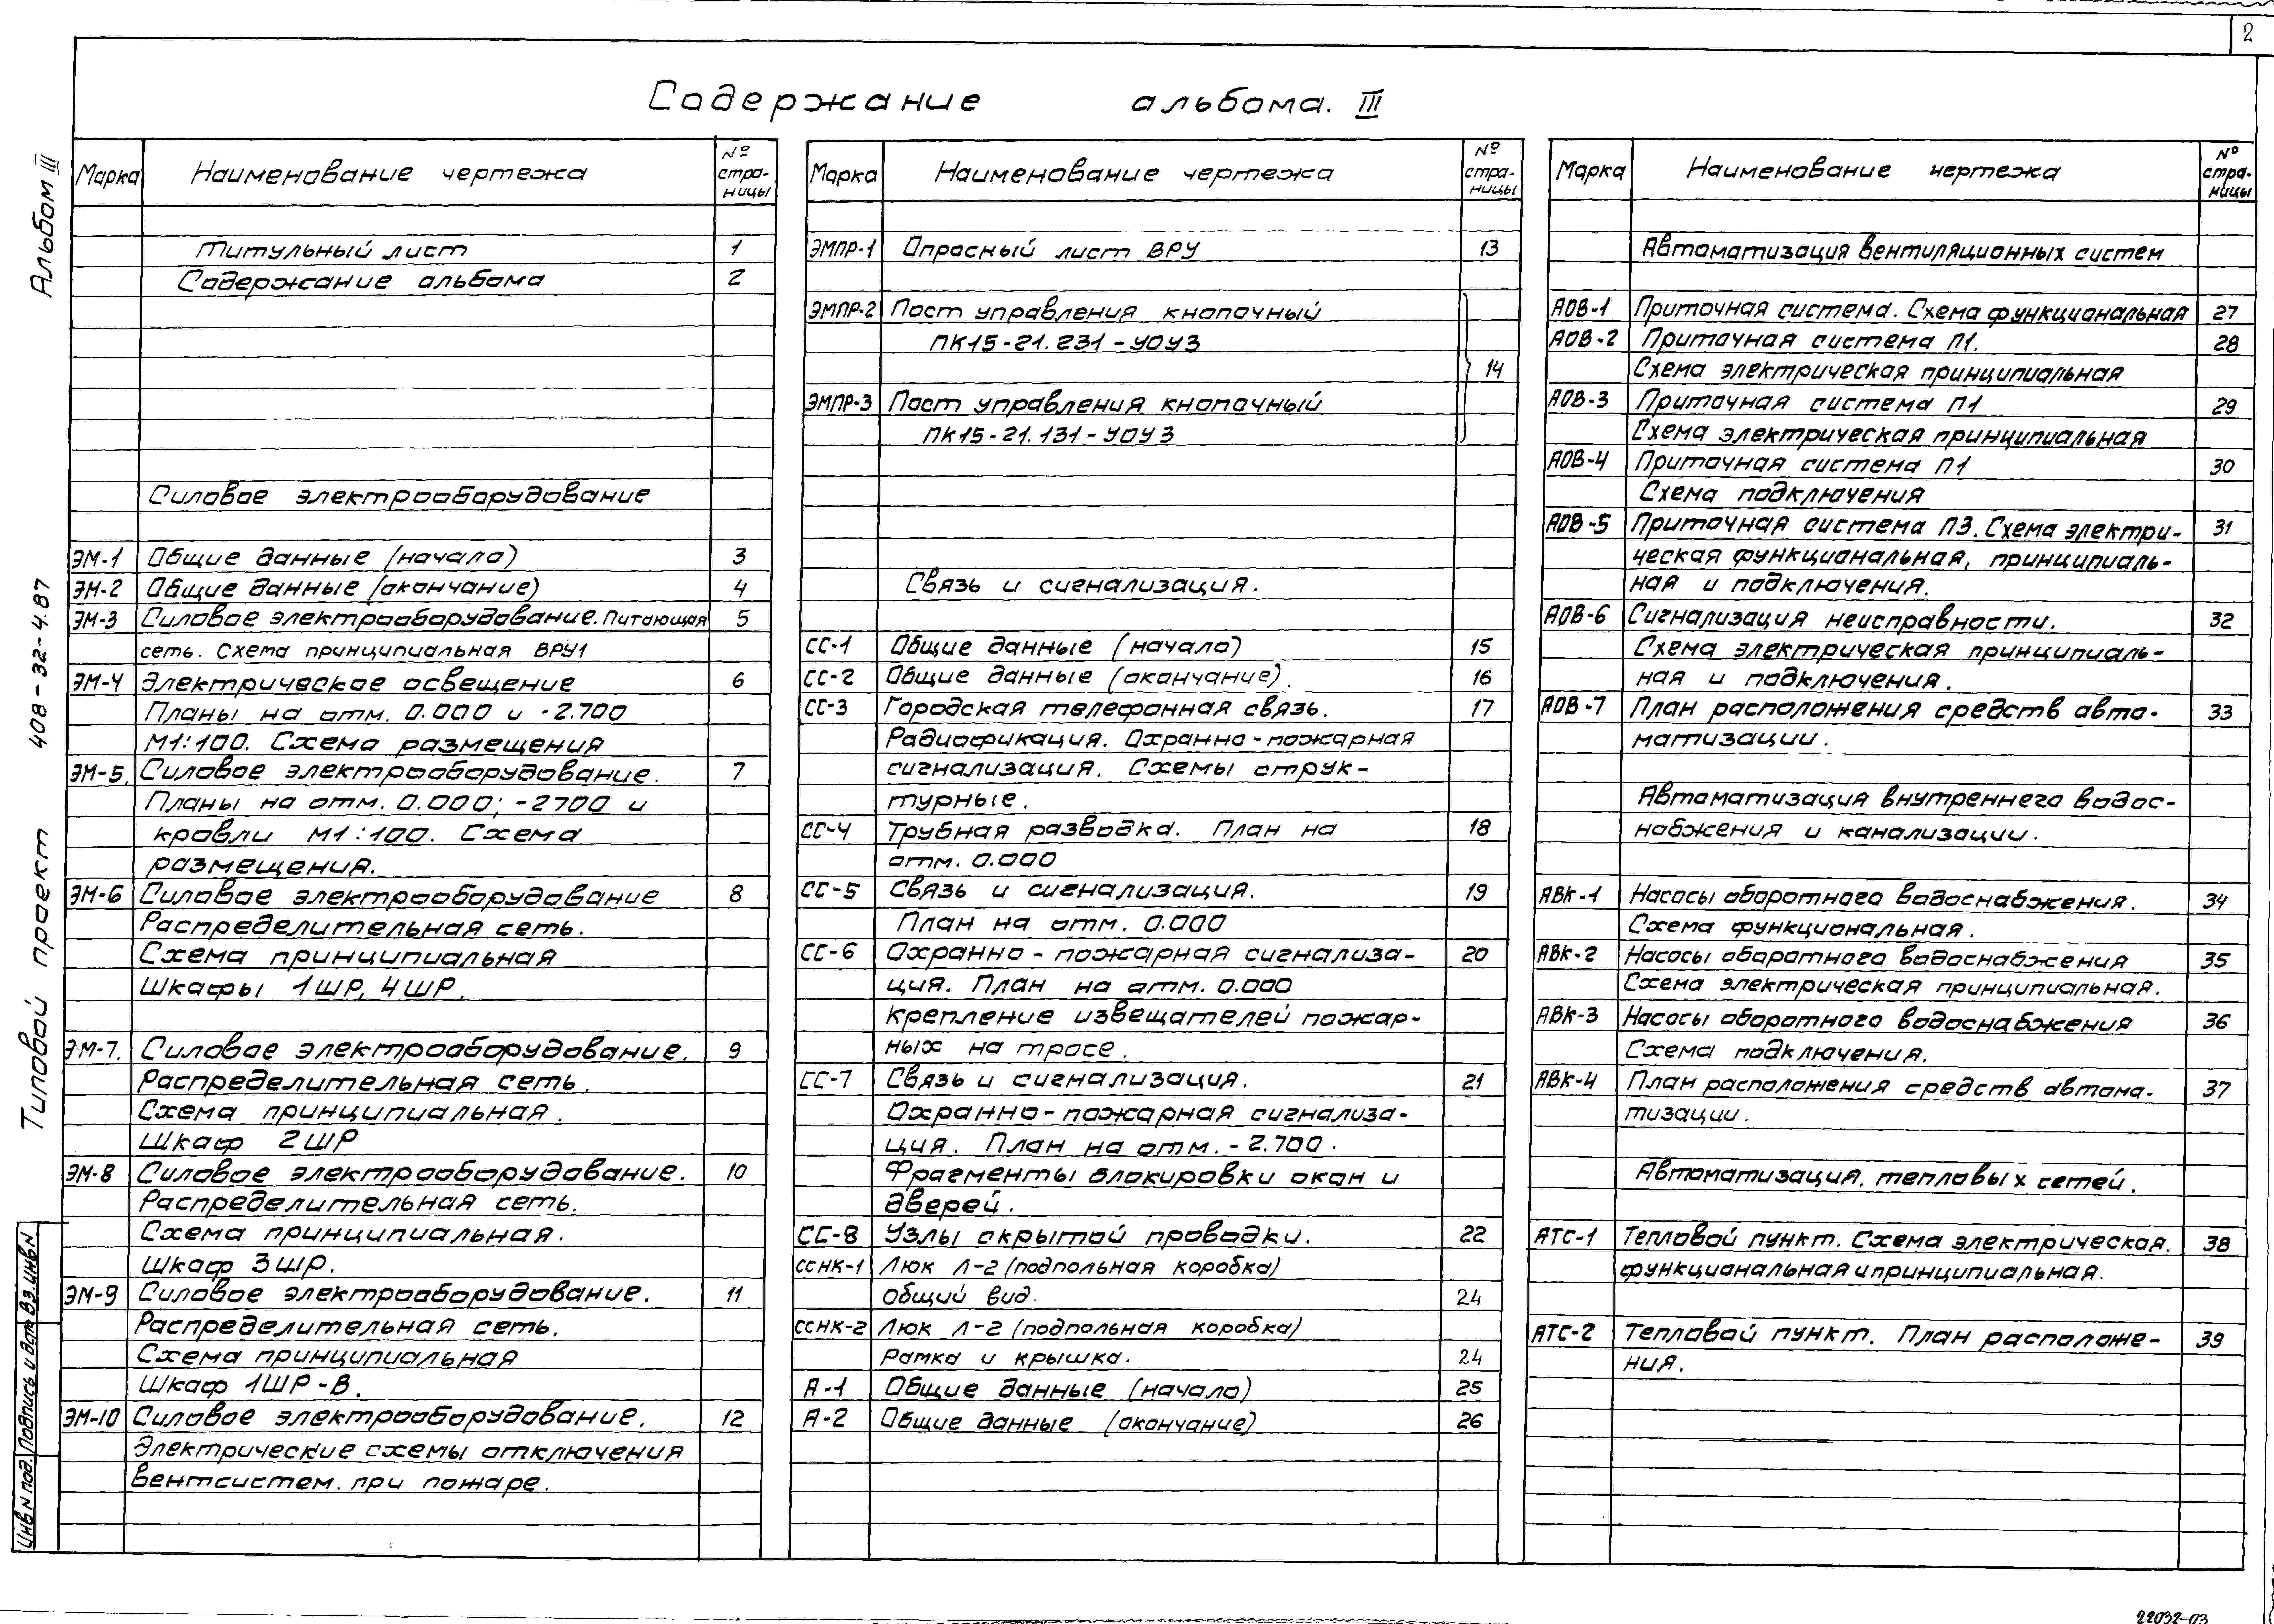 2
Содержание альбома. III
Альбом III
Типовой проект 408-32-4.87
Инв N под. Подпись и дата Вз. инв N
Марка Наименование чертежа № стра-
ницы
Титульный лист 1
Содержание альбома 2
Силовое электрооборудование
ЭМ-1 Общие данные (начало) 3
ЭМ-2 Общие данные (окончание) 4
ЭМ-3 Силовое электрооборудование. Питающая 5
сеть. Схема принципиальная ВРУ1
ЭМ-4 Электрическое освещение 6
Планы на отм. 0.000 и -2.700
М1:100. Схема размещения
ЭМ-5. Силовое электрооборудование. 7
Планы на отм. 0.000; -2700 и
кровли М1:100. Схема
размещения.
ЭМ-6 Силовое электрооборудование 8
Распределительная сеть.
Схема принципиальная
Шкафы 1ШР, 4ШР.
ЭМ-7. Силовое электрооборудование. 9
Распределительная сеть.
Схема принципиальная.
Шкаф 2ШР
ЭМ-8 Силовое электрооборудование. 10
Распределительная сеть.
Схема принципиальная.
Шкаф 3ШР.
ЭМ-9 Силовое электрооборудование. 11
Распределительная сеть.
Схема принципиальная
Шкаф 1ШР-В.
ЭМ-10 Силовое электрооборудование. 12
Электрические схемы отключения
вентсистем. при пожаре.
Марка Наименование чертежа № стра-
ницы
ЭМПР-1 Опросный лист ВРУ 13
ЭМПР-2 Пост управления кнопочный
ПК15-21.231-УОУ3
14
ЭМПР-3 Пост управления кнопочный
ПК15-21.131-УОУ3
Связь и сигнализация.
СС-1 Общие данные (начало) 15
СС-2 Общие данные (окончание). 16
СС-3 Городская телефонная связь. 17
Радиофикация. Охранно-пожарная
сигнализация. Схемы струк-
турные.
СС-4 Трубная разводка. План на 18
отм. 0.000
СС-5 Связь и сигнализация. 19
План на отм. 0.000
СС-6 Охранно-пожарная сигнализа- 20
ция. План на отм. 0.000
крепление извещателей пожар-
ных на тросе.
СС-7 Связь и сигнализация. 21
Охранно-пожарная сигнализа-
ция. План на отм. -2.700.
Фрагменты блокировки окон и
дверей.
СС-8 Узлы скрытой проводки. 22
ССНК-1 Люк Л-2 (подпольная коробка)
общий вид. 24
ССНК-2 Люк Л-2 (подпольная коробка)
Рамка и крышка. 24
А-1 Общие данные (начало) 25
А-2 Общие данные (окончание) 26
Марка Наименование чертежа № стра-
ницы
Автоматизация вентиляционных систем
АОВ-1 Приточная система. Схема функциональная 27
АОВ-2 Приточная система П1. 28
Схема электрическая принципиальная
АОВ-3 Приточная система П1 29
Схема электрическая принципиальная
АОВ-4 Приточная система П1 30
Схема подключения
АОВ-5 Приточная система П3. Схема электри- 31
ческая функциональная, принципиаль-
ная и подключения.
АОВ-6 Сигнализация неисправности. 32
Схема электрическая принципиаль-
ная и подключения.
АОВ-7 План расположения средств авто- 33
матизации.
Автоматизация внутреннего водос-
набжения и канализации.
АВК-1 Насосы оборотного водоснабжения. 34
Схема функциональная.
АВК-2 Насосы оборотного водоснабжения 35
Схема электрическая принципиальная.
АВК-3 Насосы оборотного водоснабжения 36
Схема подключения.
АВК-4 План расположения средств автома- 37
тизации.
Автоматизация. тепловых сетей.
АТС-1 Тепловой пункт. Схема электрическая. 38
функциональная и принципиальная.
АТС-2 Тепловой пункт. План расположе- 39
ния.
22032-03